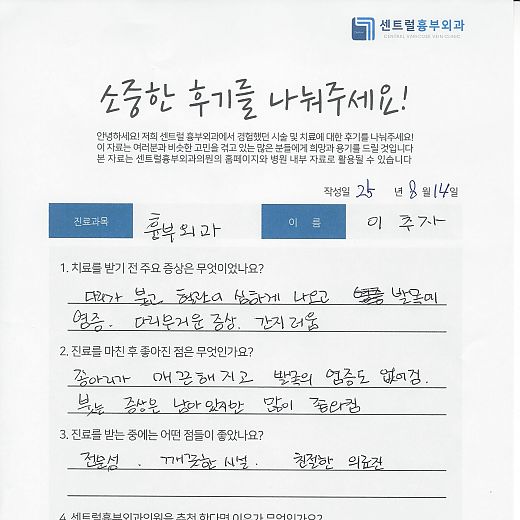 센트럴흉부외과
CENTRAL VARICOSE VEIN CLINIC
소중한 후기를 나눠주세요!
안녕하세요! 저희 센트럴 흉부외과에서 경험했던 시술 및 치료에 대한 후기를 나눠주세요!
이 자료는 여러분과 비슷한 고민을 겪고 있는 많은 분들에게 희망과 용기를 드릴 것입니다
본 자료는 센트럴흉부외과의원의 홈페이지와 병원 내부 자료로 활용될 수 있습니다
작성일 25 년 8 월 14 일
진료과목 흉부외과 이 름 이 추자
1. 치료를 받기 전 주요 증상은 무엇이었나요?
다리가 붓고 혈관이 심하게 나오고 발목에
염증. 다리무거운 증상. 간지러움
2. 진료를 마친 후 좋아진 점은 무엇인가요?
종아리가 매끈해지고 발목의 염증도 없어짐.
붓는 증상은 남아있지만 많이 좋아짐
3. 진료를 받는 중에는 어떤 점들이 좋았나요?
전문성. 깨끗한 시설. 친절한 의료진
4. 센트럴흉부외과의원을 추천 한다면 이유가 무엇인가요?